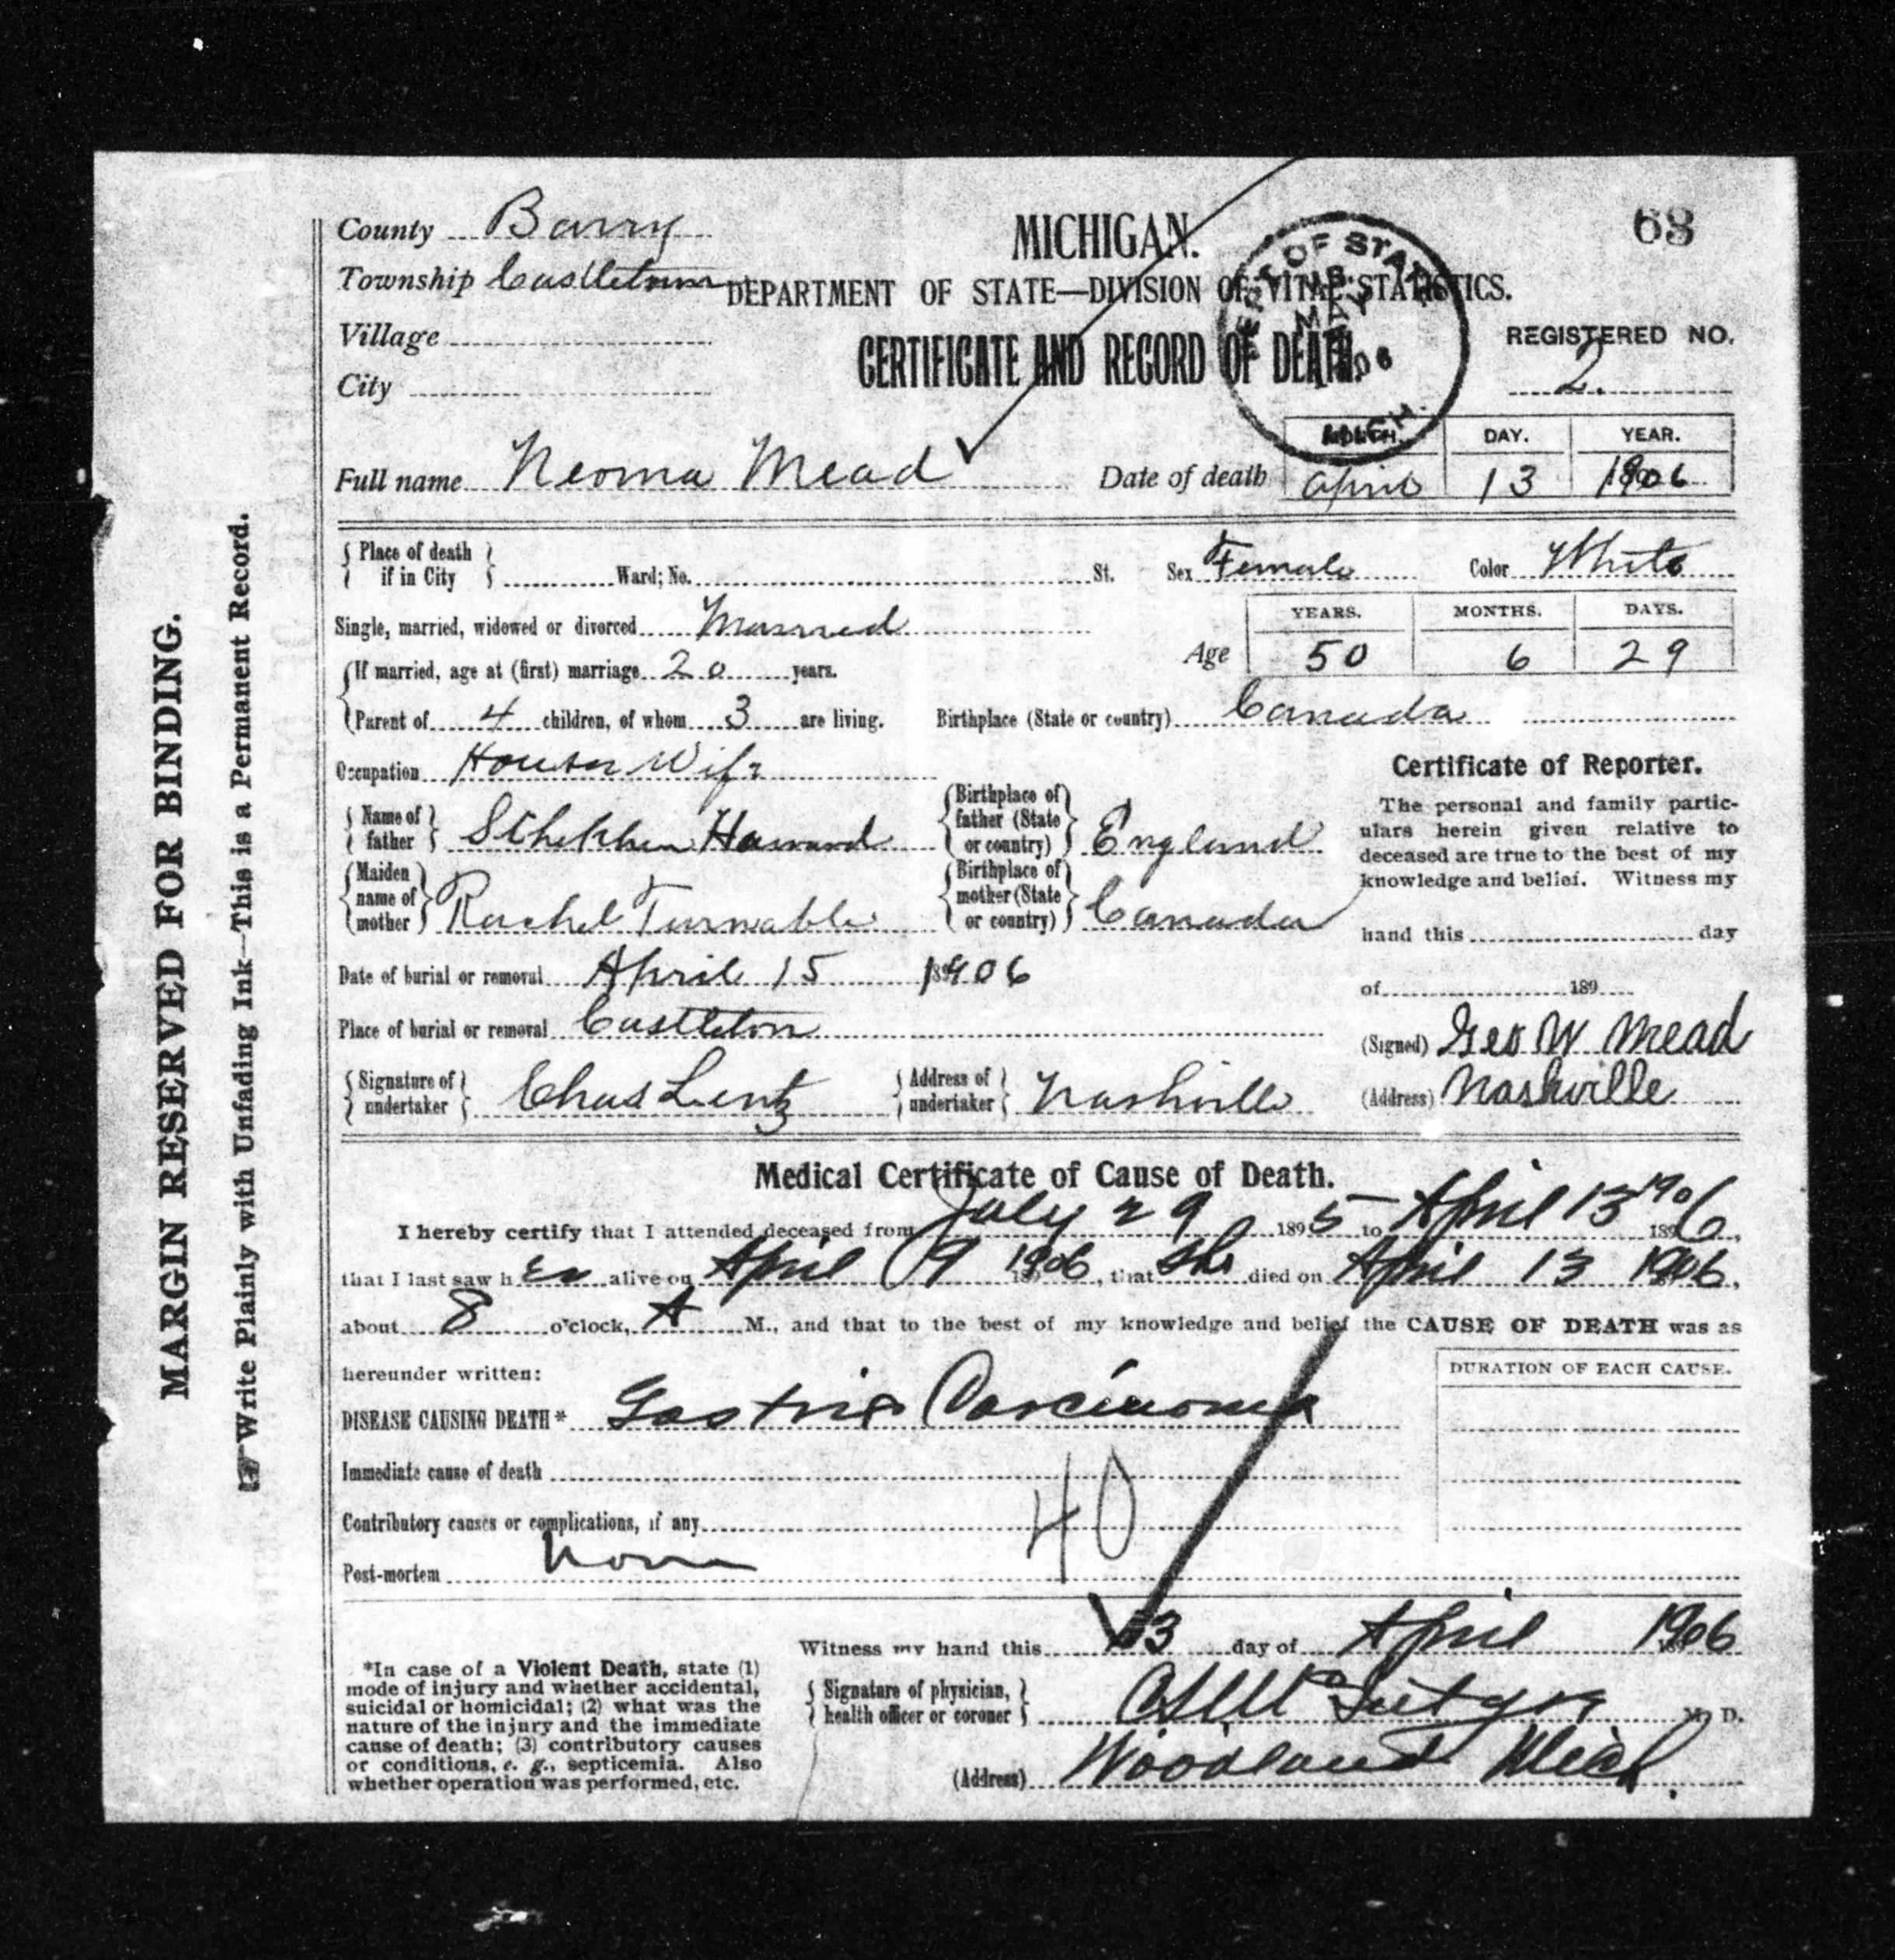 68
County Barry
MICHIGAN.
Township Castleton
DEPARTMENT OF STATE—DIVISION OF VITAL STATISTICS.
Village
CERTIFICATE AND RECORD OF DEATH.
REGISTERED NO.
City
2.
OF STATE
MAY
MICH.
MONTH. DAY. YEAR.
Full name Neoma Mead Date of death April 13 1906
Place of death if in City Ward; No. St. Sex Female Color White
Single, married, widowed or divorced Married
YEARS. MONTHS. DAYS.
Age 50 6 29
If married, age at (first) marriage 20 years.
Parent of 4 children, of whom 3 are living. Birthplace (State or country) Canada
Occupation House Wife
Name of father Howard
Birthplace of father (State or country) England
Maiden name of mother Rachel
Birthplace of mother (State or country) Canada
Date of burial or removal April 15 1906
Place of burial or removal Castleton
Signature of undertaker Chas Lentz Address of undertaker Nashville
Certificate of Reporter.
The personal and family partic-
ulars herein given relative to
deceased are true to the best of my
knowledge and belief. Witness my
hand this day
of 189
(Signed) Geo W Mead
(Address) Nashville
Medical Certificate of Cause of Death.
I hereby certify that I attended deceased from July 29 1895 to April 13 1906,
that I last saw her alive on April 9 1906, that she died on April 13 1906,
about 8 o'clock, A M., and that to the best of my knowledge and belief the CAUSE OF DEATH was as
hereunder written:
DURATION OF EACH CAUSE.
DISEASE CAUSING DEATH* Gastric Carcinoma
Immediate cause of death
40
Contributory causes or complications, if any
Post-mortem None
Witness my hand this 13 day of April 1906
Signature of physician, health officer or coroner M. D.
(Address) Woodland Mich.
*In case of a Violent Death, state (1)
mode of injury and whether accidental,
suicidal or homicidal; (2) what was the
nature of the injury and the immediate
cause of death; (3) contributory causes
or conditions, e. g., septicemia. Also
whether operation was performed, etc.
MARGIN RESERVED FOR BINDING.
Write Plainly with Unfading Ink—This is a Permanent Record.